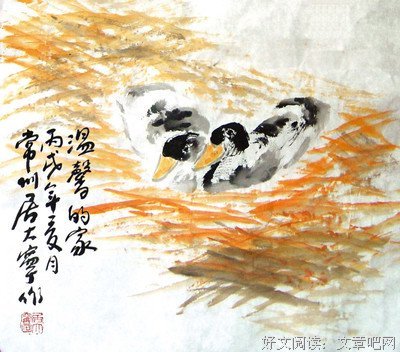 溫馨的家
丙戌年夏月
常州居大寧作
好文阅读：文章吧网